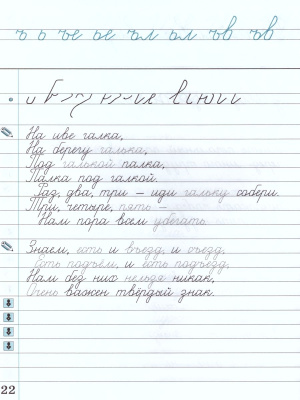 ъ ъ ъе ъе ъл ъл ъв ъв
На иве галка,
На берегу галька,
Под галькой палка,
Палка под галкой.
Раз, два, три – иди гальку собери.
Три, четыре, пять –
Нам пора всем убегать.
Знаем, есть и въезд, и съезд,
Есть подъём, и есть подъезд,
Нам без них нельзя никак,
Очень важен твёрдый знак.
22